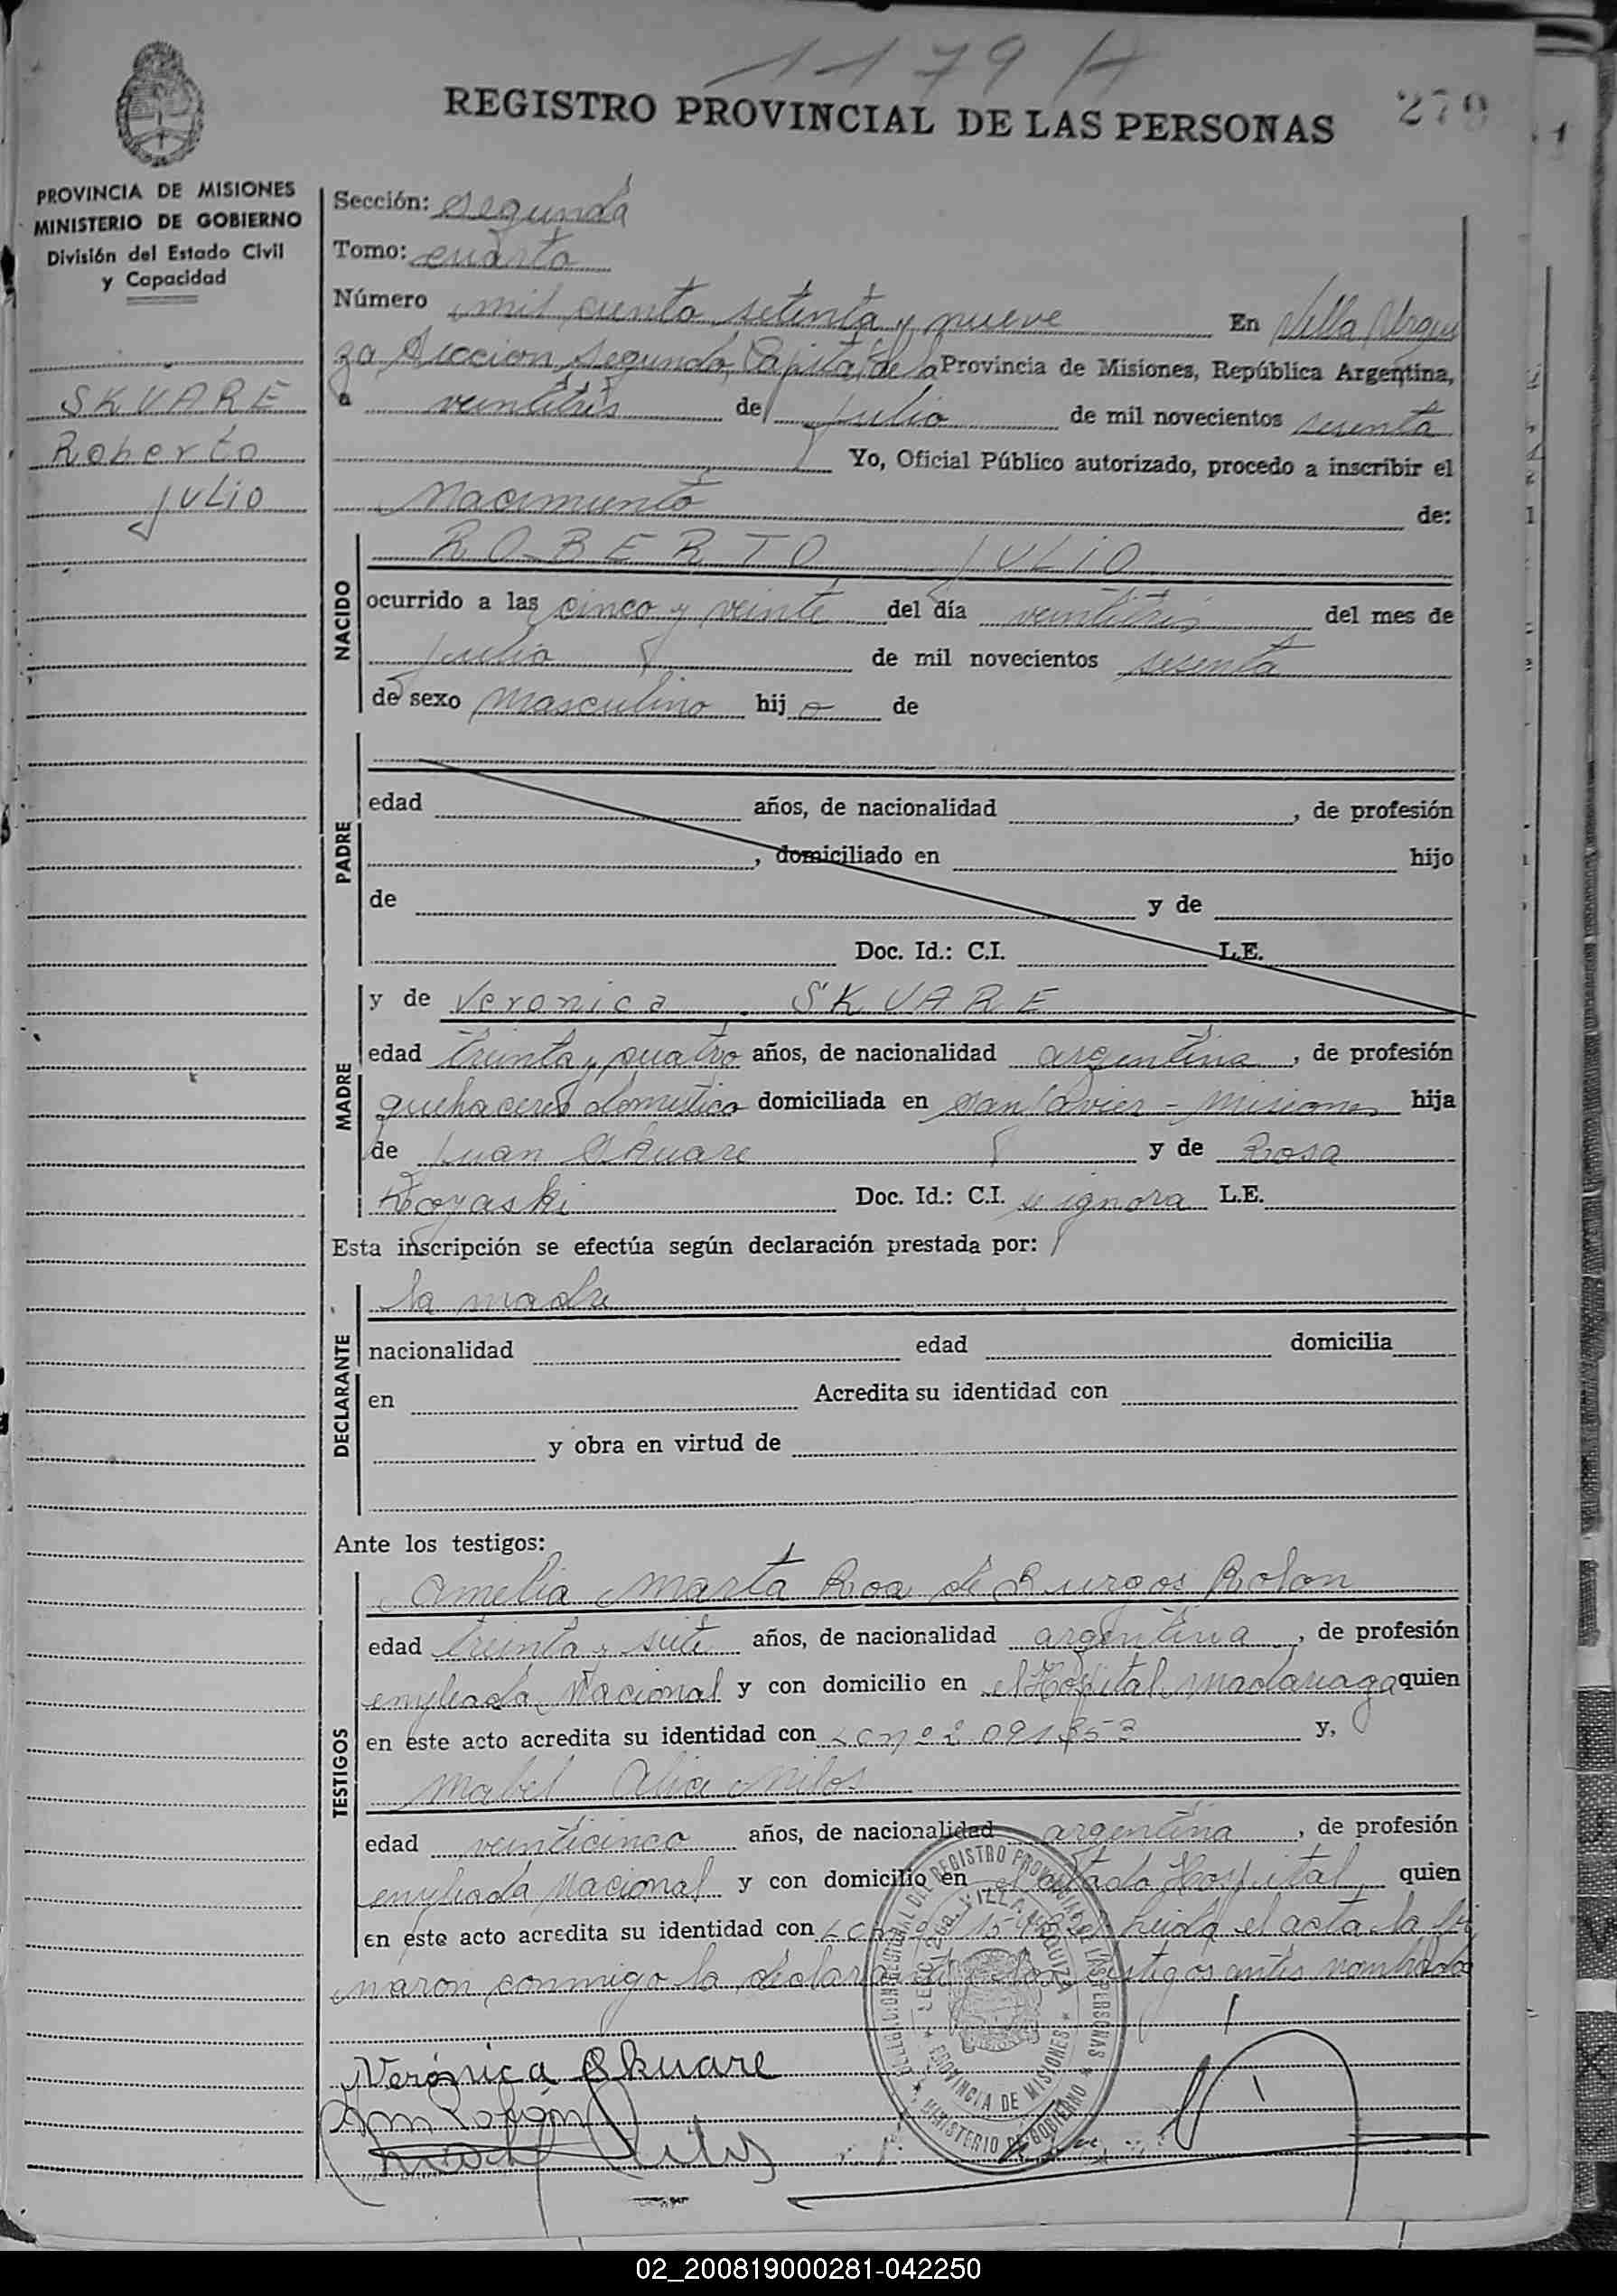 1179 H
REGISTRO PROVINCIAL DE LAS PERSONAS 279
PROVINCIA DE MISIONES
MINISTERIO DE GOBIERNO
División del Estado Civil
y Capacidad
SKVARE
Roberto
JULIO
Sección: segunda
Tomo: cuarto
Número mil ciento setenta y nueve En Villa Urqui
za Seccion Segunda, Capital de la Provincia de Misiones, República Argentina,
a veintitrés de julio de mil novecientos sesenta
Yo, Oficial Público autorizado, procedo a inscribir el
Nacimiento de:
NACIDO
ROBERTO JULIO
ocurrido a las cinco y veinte del día veintitrés del mes de
julio de mil novecientos sesenta
de sexo masculino hij o de
PADRE
edad años, de nacionalidad , de profesión
, domiciliado en hijo
de y de
Doc. Id.: C.I. L.E.
MADRE
y de Veronica SKVARE
edad treinta y cuatro años, de nacionalidad argentina , de profesión
quehaceres domestico domiciliada en San Javier - Misiones hija
de Juan Skvare y de Rosa
Kozaski Doc. Id.: C.I. se ignora L.E.
Esta inscripción se efectúa según declaración prestada por:
DECLARANTE
la madre
nacionalidad edad domicilia
en Acredita su identidad con
y obra en virtud de
Ante los testigos:
TESTIGOS
Amelia Marta Roa de Burgos Rolon
edad treinta y siete años, de nacionalidad argentina , de profesión
empleada Nacional y con domicilio en el Hospital Madariaga quien
en este acto acredita su identidad con LC nº 2.091.353 y,
Mabel Alicia
edad veinticinco años, de nacionalidad argentina , de profesión
empleada Nacional y con domicilio en el citado Hospital, quien
en este acto acredita su identidad con LC Leida el acta la fir
maron conmigo la declarante y los testigos antes nombrados
DELEGACION SECCIONAL DEL REGISTRO PROVINCIAL DE LAS PERSONAS
SECC. 2da. VILLA URQUIZA
PROVINCIA DE MISIONES
MINISTERIO DE GOBIERNO
Verónica Skvare
02_200819000281-042250